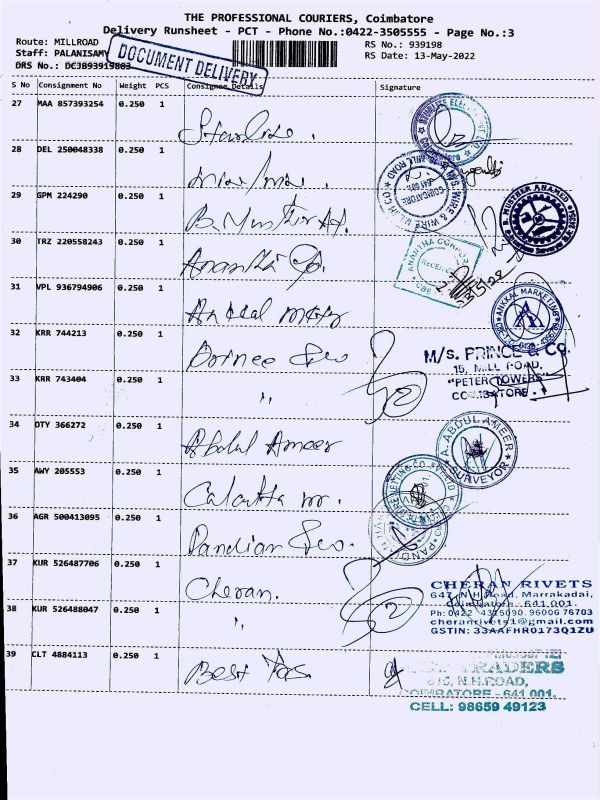 THE PROFESSIONAL COURIERS, Coimbatore
Delivery Runsheet - PCT - Phone No.:0422-3505555 - Page No.:3
Route: MILLROAD RS No.: 939198
Staff: PALANISAMY RS Date: 13-May-2022
DRS No.: DCJB93919803
DOCUMENT DELIVERY
S No Consignment No Weight PCS Consignee Details Signature
27 MAA 857393254 0.250 1
28 DEL 250048338 0.250 1
WIRE & WIRE MESH CO
MILL ROAD
COIMBATORE
29 GPM 224290 0.250 1
MUSTHER AHAMED
30 TRZ 220558243 0.250 1 Anantha
ANANTHA CORPOR
RECEIVED
CBE
31 VPL 936794906 0.250 1 Ankkal
ANKKAL MARKETING
32 KRR 744213 0.250 1
M/s. PRINCE & CO.
15, MILL ROAD,
"PETER TOWERS"
COIMBATORE
33 KRR 743404 0.250 1 "
34 DTY 366272 0.250 1 Abdul Ameer
A. ABDUL AMEER
SURVEYOR
35 AWY 205553 0.250 1 Calcutta
36 AGR 500413095 0.250 1 Pandian
37 KUR 526487706 0.250 1 Cheran.
CHERAN RIVETS
647, N.H. Road, Marrakadai,
Coimbatore - 641 001.
Ph: 0422 - 4315090, 96006 76703
cheranrivets1@gmail.com
GSTIN: 33AAFHR0173Q1ZU
38 KUR 526488047 0.250 1 "
39 CLT 4884113 0.250 1 Best
TRADERS
N.H.ROAD,
COIMBATORE - 641 001.
CELL: 98659 49123